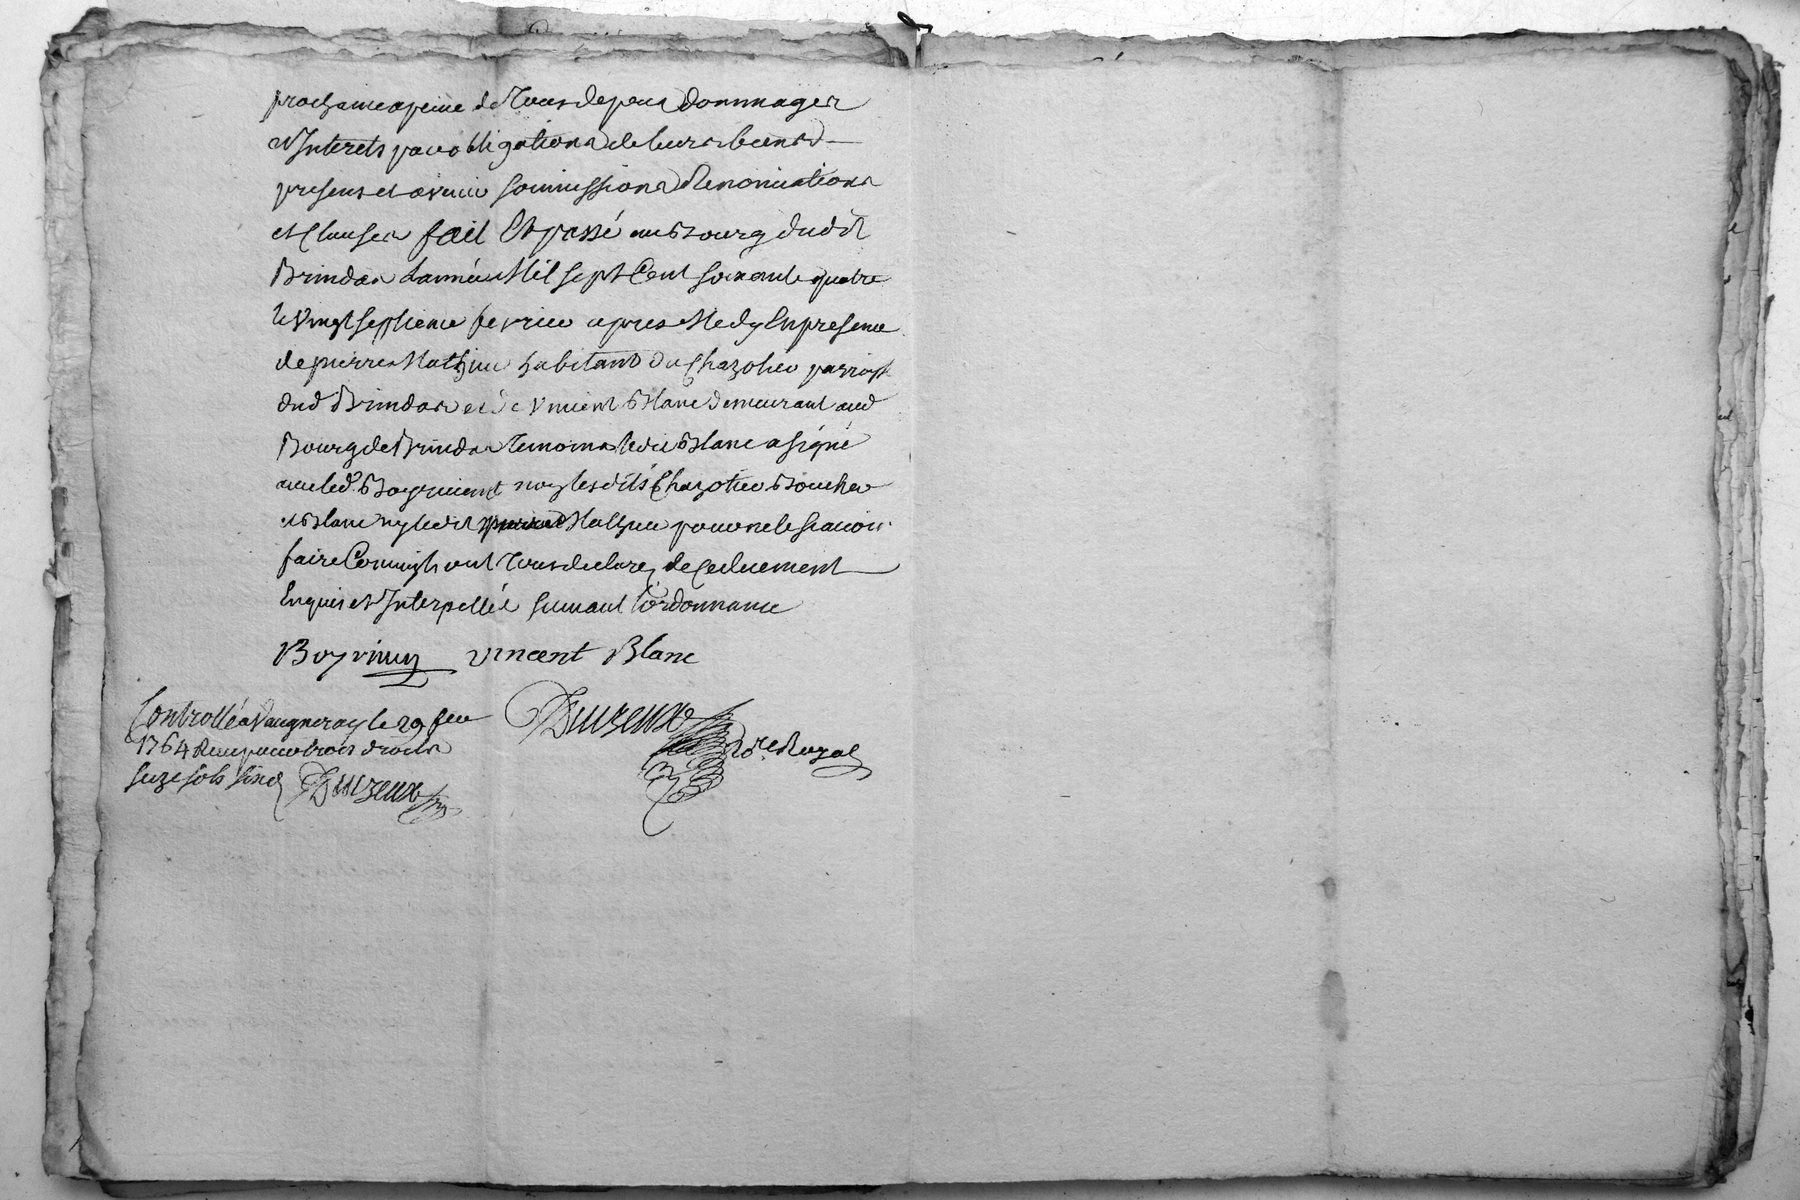 prochaine a peine de Tous depens Dommages
et Interets par obligations de leurs biens
presens et avenir soumissions Renonciations
et Clauses fait Et passé au Bourg dudit
Brindas Lannée Mil sept Cent soixante quatre
le Vingt septieme fevrier apres Midy En presence
de pierre Mathieu habitant du Chazotier parroisse
dud Brindas et de Vincent Blanc demeurant aud
Bourg de Brindas Temoins ledit Blanc a signé
avec led. Boyrivent non lesdits Chazotier Boucher
et Blanc ny ledit Mathieu pour ne le scavoir
faire Comme ils ont Tous declarez de ce duement
Enquis et Interpellés suivant l'ordonnance
Boyriven Vincent Blanc
Controllé a Vaugneray le 29 fev
1764 Reçu pour trois droits
seize sols sinq Duvzeux
Duvzeux
No.re Royal